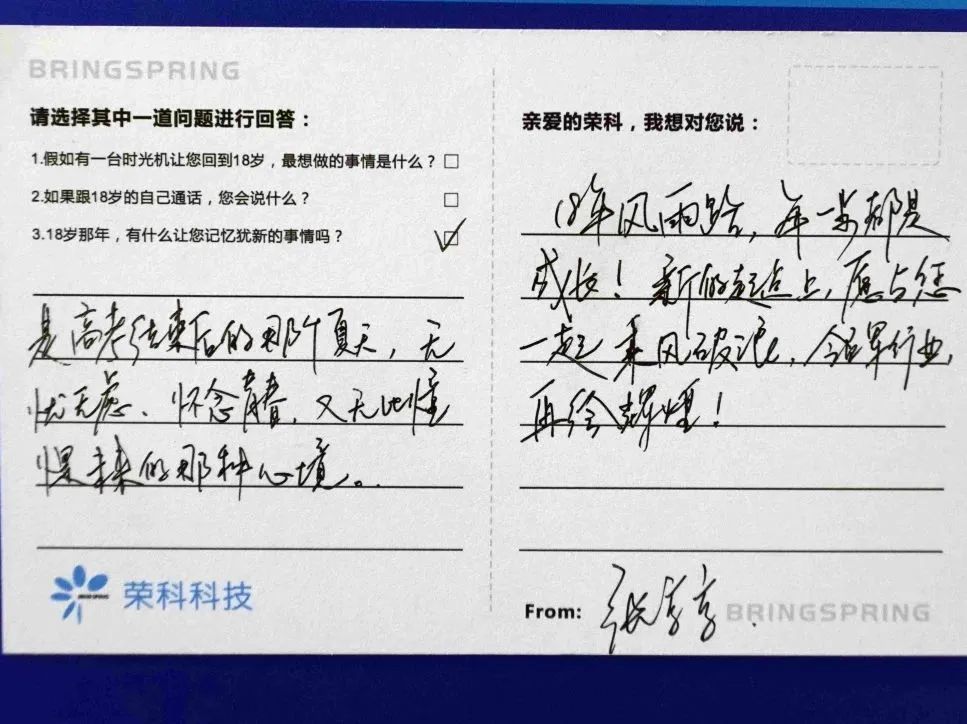 BRINGSPRING
请选择其中一道问题进行回答：
1.假如有一台时光机让您回到18岁，最想做的事情是什么？□
2.如果跟18岁的自己通话，您会说什么？□
3.18岁那年，有什么让您记忆犹新的事情吗？☑
是高考结束后的那个夏天，无
忧无虑、怀念青春，又无比憧
憬未来的那种心境。
荣科科技
亲爱的荣科，我想对您说：
18年风雨路，每一步都是
成长！新的起点上，愿与您
一起乘风破浪，领军行业，
再绘辉煌！
From: 张
BRINGSPRING